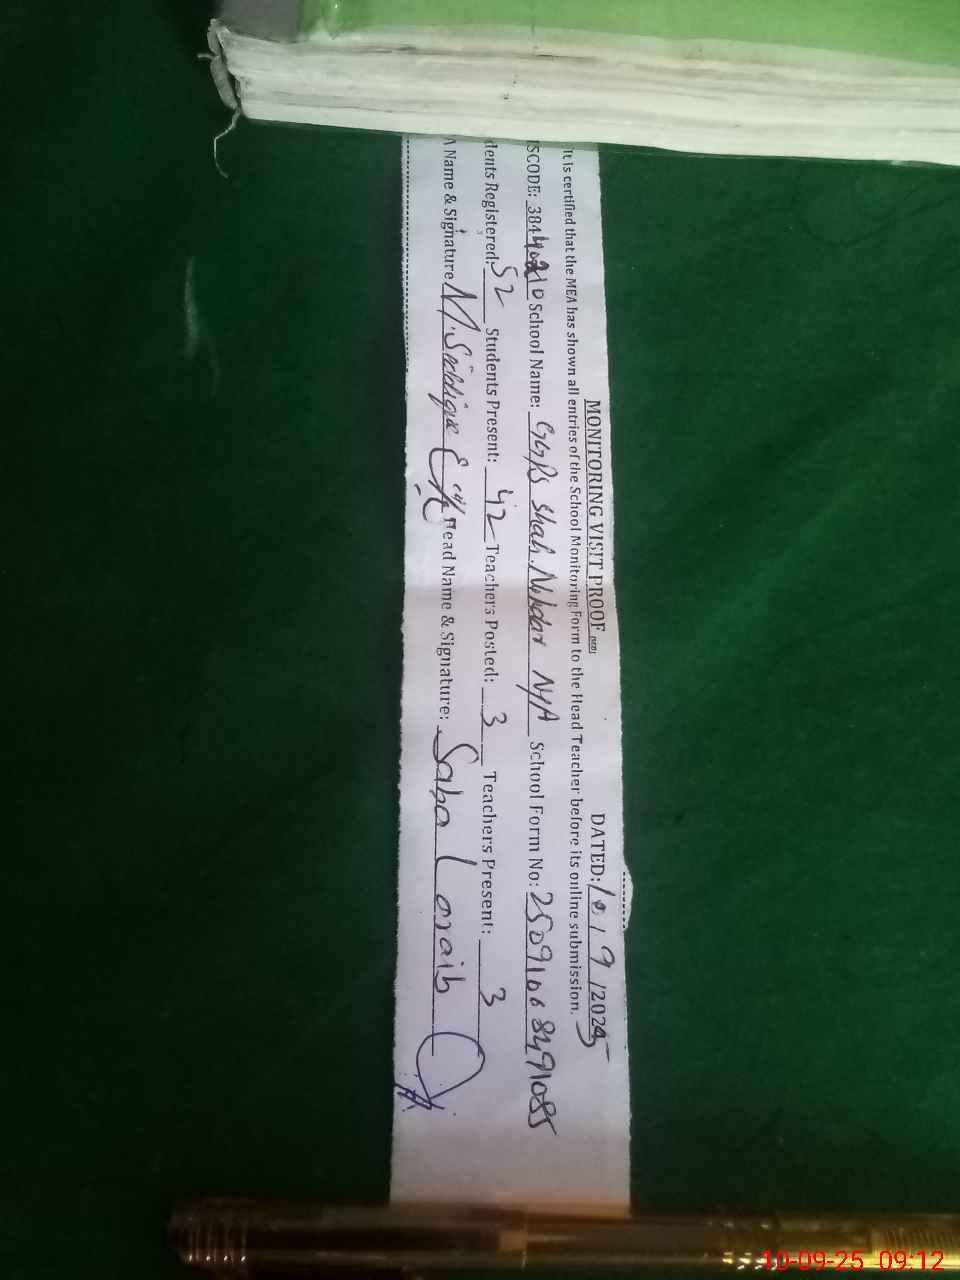 MONITORING VISIT PROOF DATED: 10 / 9 /2025
It is certified that the MEA has shown all entries of the School Monitoring Form to the Head Teacher before its online submission.
SCODE: School Name: GGPS Shah Nikdar NYA School Form No: 25091008491085
dents Registered: 52 Students Present: 42 Teachers Posted: 3 Teachers Present: 3
A Name & Signature M. Siddique Head Name & Signature: Saba Laraib
10-09-25 09:12